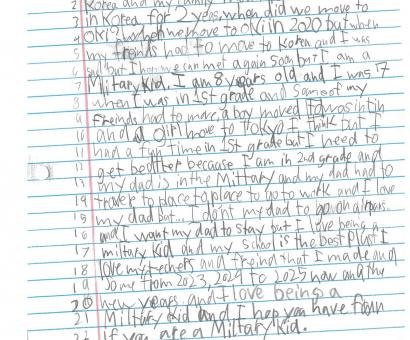 2 Korea and my family
3 in Korea for 2 years, when did we move to
4 Oki when we move to Oki in 2020 but when
5 my freinds had to move to Korea and I was
6 sad but I we can met again soon but I am a
7 Military Kid. I am 8 years old and I was 17
8 when I was in 1st grade and some of my
9 Freinds had to move, a boy moved to
10 and a girl move to tokyo I think but I
11 had a fun time in 1st grade but I need to
12 get because I am in 2nd grade and
13 my dad is in the Military and my dad had to
14 place to place to go to work and I love
15 my dad but... I dont my dad to go on
16 and I want my dad to stay but I love being a
17 miltary kid and my school is the best I
18 love my and freind that I made and
19 some from 2023, 2024 to 2025 now and the
20 new years. and I love being a
21 Military Kid and I hop you have
22 if you are a Miltary Kid.